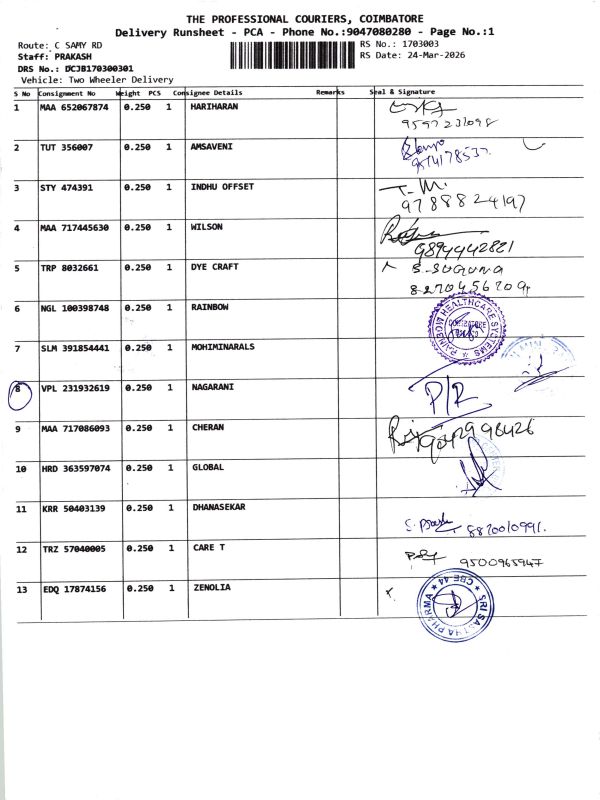 THE PROFESSIONAL COURIERS, COIMBATORE
Delivery Runsheet - PCA - Phone No.:9047080280 - Page No.:1
Route: C SAMY RD RS No.: 1703003
Staff: PRAKASH RS Date: 24-Mar-2026
DRS No.: DCJB170300301
Vehicle: Two Wheeler Delivery
S No Consignment No Weight PCS Consignee Details Remarks Seal & Signature
1 MAA 652067874 0.250 1 HARIHARAN
9597231098
2 TUT 356007 0.250 1 AMSAVENI
3 STY 474391 0.250 1 INDHU OFFSET T. M.
9788824197
4 MAA 717445630 0.250 1 WILSON
9894442821
5 TRP 8032661 0.250 1 DYE CRAFT S. SUGUNA
6 NGL 100398748 0.250 1 RAINBOW RAINBOW HEALTHCARE SYSTEMS COIMBATORE
7 SLM 391854441 0.250 1 MOHIMINARALS
8 VPL 231932619 0.250 1 NAGARANI P/R
9 MAA 717086093 0.250 1 CHERAN
10 HRD 363597074 0.250 1 GLOBAL
11 KRR 50403139 0.250 1 DHANASEKAR 8870010991.
12 TRZ 57040005 0.250 1 CARE T 9500965947
13 EDQ 17874156 0.250 1 ZENOLIA SRI SASTHA PHARMA CBE-44